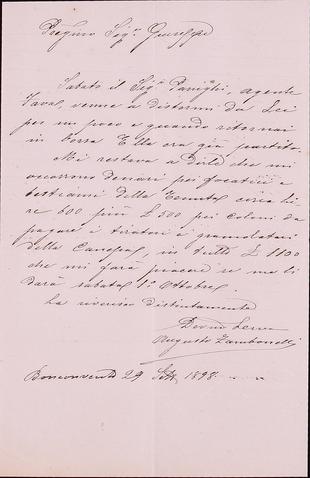 Pregmo Sigr. Giuseppe
Sabato il Sigr. Paviglj, agente
Taval, venne a distormi da Lei
per un poco e quando ritornai
in borsa Ella era già partito.
Mi restava a dirle che mi
occorrono denari pei focatici e
bestiami della Tenuta circa li-
re 600 più £ 500 pei coloni da
pagare i tiratori e gramolatori
della Canepa, in tutto £ 1100
che mi farà piacere se me li
darà sabato 1º Ottobre.
La riverisco distintamente
Devmo Servo
Augusto Zambonelli
Bonconvento 29 Sett 1898.